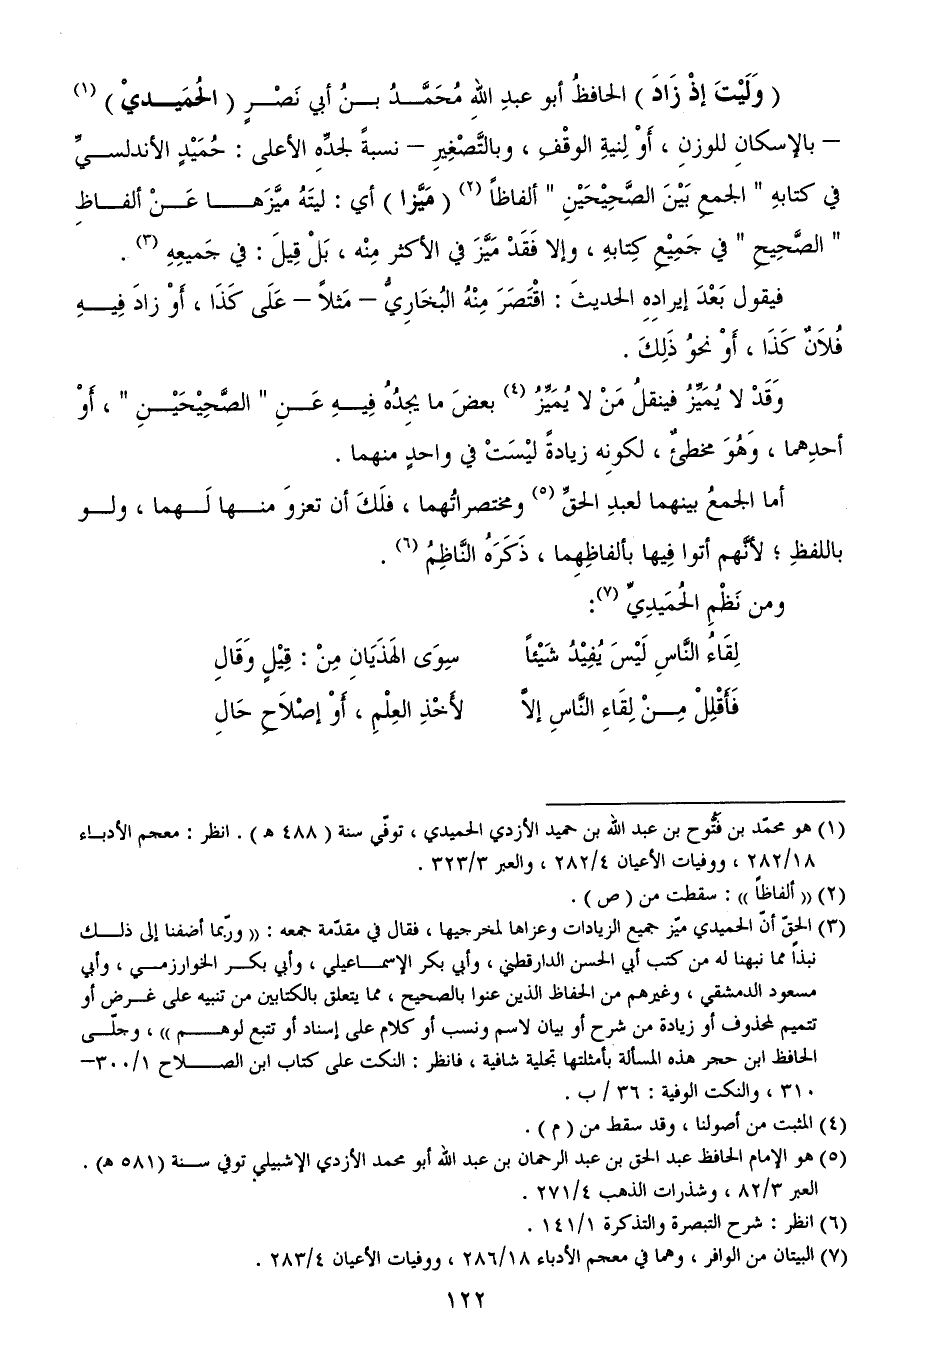 ( وَلَيْتَ إذْ زَادَ ) الحافظُ أبو عبدِ اللهِ مُحَمَّدُ بنُ أبي نَصْرٍ ( الحُمَيدِيْ ) (١)
– بالإسكانِ للوزنِ ، أَوْ لِنيةِ الوقْفِ ، وبالتَّصْغِيرِ – نسبةً لجدِّه الأعلى : حُمَيْدٍ الأندلسيِّ
في كتابهِ " الجمعِ بَيْنَ الصَّحِيْحَيْنِ " ألفاظاً (٢) ( مَيَّزا ) أي : ليتَهُ ميَّزَها عَنْ ألفاظِ
" الصَّحِيحِ " في جَمِيْعِ كِتابهِ ، وإلا فَقَدْ مَيَّزَ في الأكثرِ مِنْه ، بَلْ قِيلَ : في جَميعِهِ (٣) .
فيقول بَعْدَ إيرادِهِ الحديثَ : اقْتَصَرَ مِنْهُ البُخَاريُّ – مَثلاً – عَلَى كَذَا ، أَوْ زادَ فِيهِ
فُلاَنٌ كَذَا ، أَوْ نحوُ ذَلِكَ .
وَقَدْ لا يُمَيِّزُ فينقلُ مَنْ لا يُمَيِّزُ (٤) بعضَ ما يجدُهُ فِيهِ عَنِ " الصَّحِيْحَيْنِ " ، أَوْ
أحدِهما ، وَهُوَ مخطئٌ ، لكونه زيادةً ليْسَتْ في واحدٍ منهما .
أما الجمعُ بينهما لعبدِ الحقِّ (٥) ومختصراتُهما ، فلَكَ أن تعزوَ منها لَهما ، ولو
باللفظِ ؛ لأنَّهم أتوا فِيها بألفاظِهما ، ذَكَرَهُ النَّاظِمُ (٦) .
ومن نَظْمِ الحُمَيدِيِّ (٧):
لِقَاءُ النَّاسِ لَيْسَ يُفِيْدُ شَيْئاً سِوَى الهَذَيَانِ مِنْ : قِيْلٍ وَقَالِ
فَأَقْلِلْ مِنْ لِقَاءِ النَّاسِ إلاَّ لأَخْذِ العِلْمِ ، أَوْ إصْلاَحِ حَالِ
(١) هو محمّد بن فتُّوح بن عبد الله بن حميد الأزدي الحميدي ، توفّي سنة ( ٤٨٨ ه ) . انظر : معجم الأدباء
١٨/٢٨٢ ، ووفيات الأعيان ٤/٢٨٢ ، والعبر ٣/٣٢٣ .
(٢) « ألفاظاً » : سقطت من ( ص ) .
(٣) الحقّ أنّ الحميدي ميّز جميع الزيادات وعزاها لمخرجيها ، فقال في مقدّمة جمعه : « وربّما أضفنا إلى ذلك
نبذاً مما نبهنا له من كتب أبي الحسن الدارقطني ، وأبي بكر الإسماعيلي ، وأبي بكر الخوارزمي ، وأبي
مسعود الدمشقي ، وغيرهم من الحفاظ الذين عنوا بالصحيح ، مما يتعلق بالكتابين من تنبيه على غرض أو
تتميم لمحذوف أو زيادة من شرح أو بيان لاسم ونسب أو كلام على إسناد أو تتبع لوهم » ، وجلّى
الحافظ ابن حجر هذه المسألة بأمثلتها تجلية شافية ، فانظر : النكت على كتاب ابن الصلاح ١/٣٠٠–
٣١٠ ، والنكت الوفية : ٣٦ / ب .
(٤) المثبت من أصولنا ، وقد سقط من ( م ) .
(٥) هو الإمام الحافظ عبد الحق بن عبد الرحمان بن عبد الله أبو محمد الأزدي الإشبيلي توفي سنة (٥٨١ ه) .
العبر ٣/٨٢ ، وشذرات الذهب ٤/٢٧١ .
(٦) انظر : شرح التبصرة والتذكرة ١/١٤١ .
(٧) البيتان من الوافر ، وهما في معجم الأدباء ١٨/٢٨٦ ، ووفيات الأعيان ٤/٢٨٣ .
١٢٢